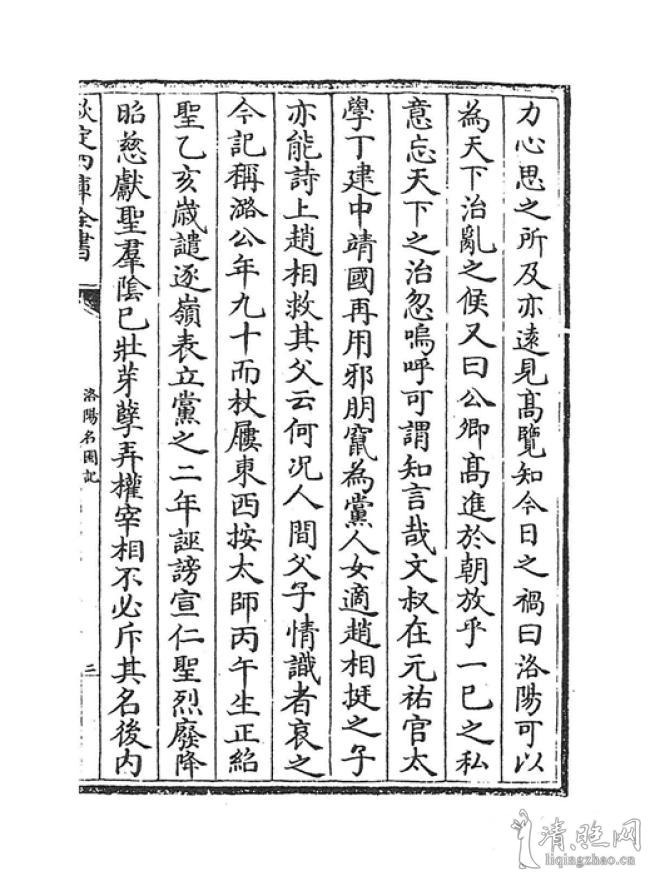 力心思之所及亦遠見髙覽知今日之禍曰洛陽可以
為天下治亂之候又曰公卿髙進於朝放乎一已之私
意忘天下之治忽嗚呼可謂知言哉文叔在元祐官太
學丁建中靖國再用邪朋竄為黨人女適趙相挺之子
亦能詩上趙相救其父云何况人間父子情識者哀之
今記稱潞公年九十而杖屨東西按太師丙午生正紹
聖乙亥嵗譴逐嶺表立黨之二年誣謗宣仁聖烈廢降
昭慈獻聖羣隂已壯芽孽弄權宰相不必斥其名後内
欽定四庫全書
洛陽名園記
二
清照网
liqingzhao.cn